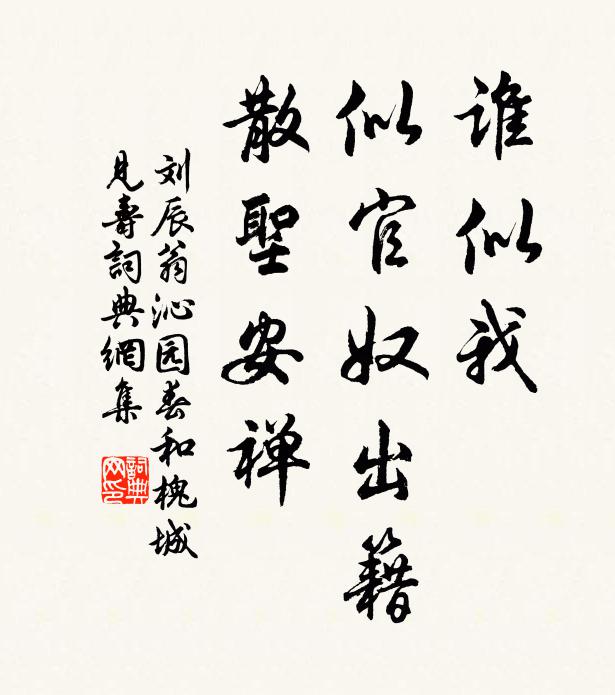 谁似我
似官奴出籍
散聖安禅
刘辰翁沁园春和槐城
见壽詞典網集
詞典网印